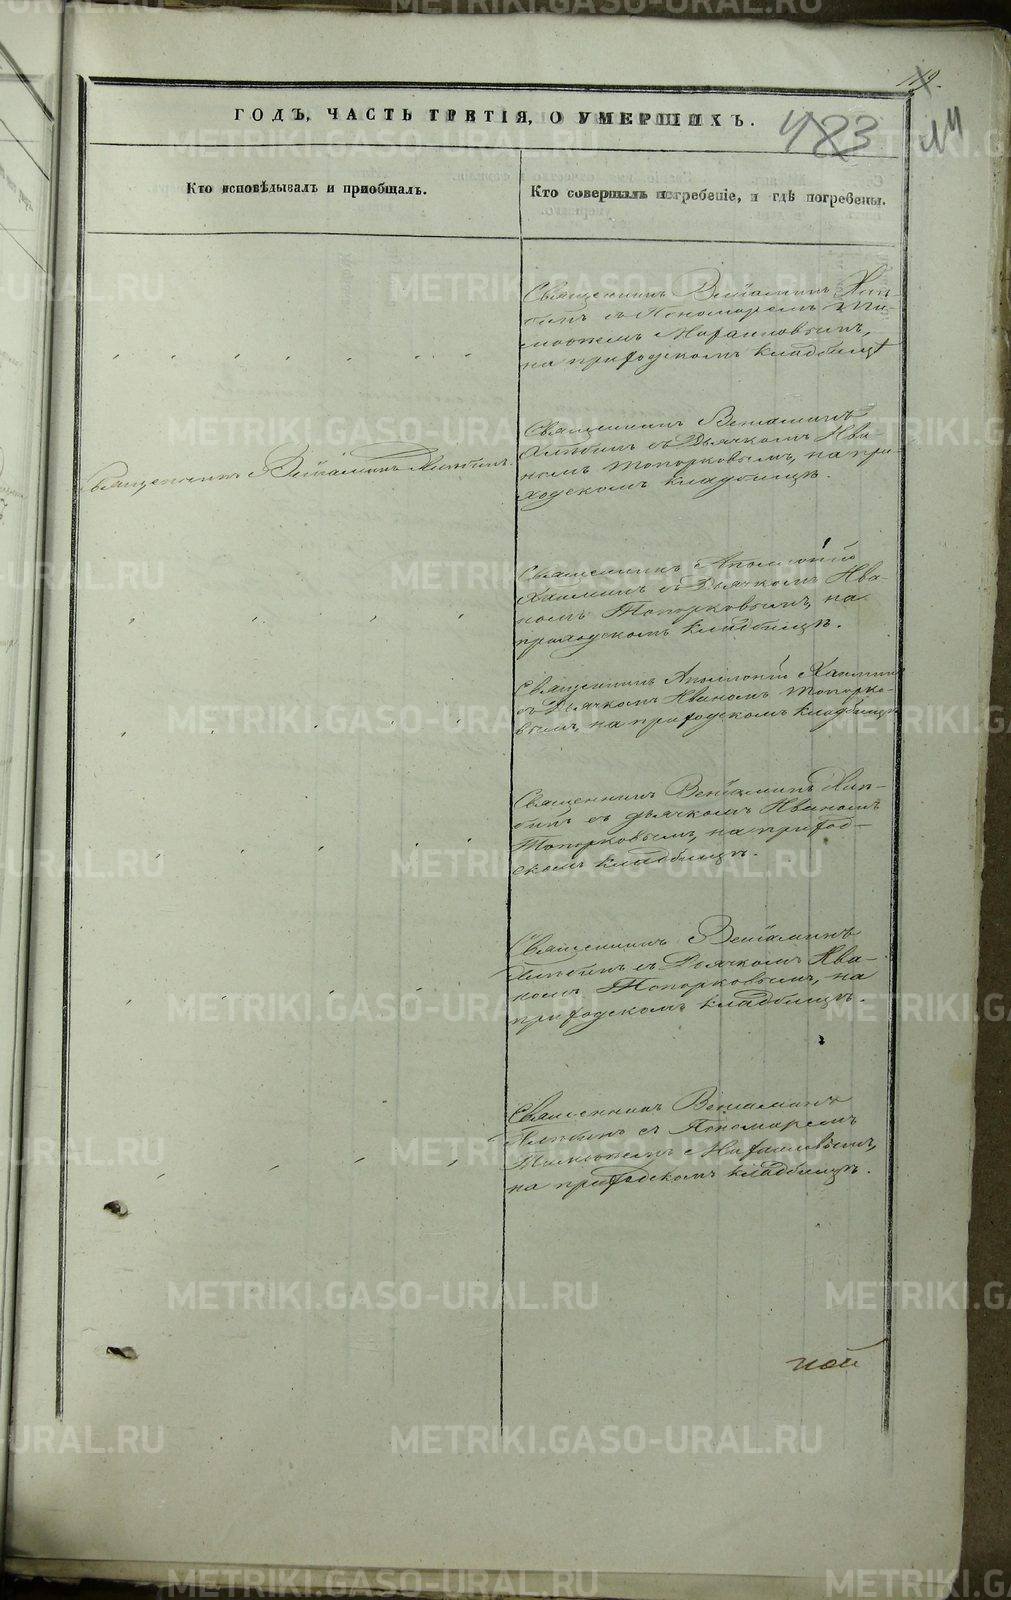 119.
ГОДЪ, ЧАСТЬ ТРЕТІЯ, О УМЕРШИХЪ.
483
Кто исповѣдывалъ и пріобщалъ.
Кто совершалъ погребеніе, и гдѣ погребены.
Священникъ Веніаминъ Хлѣ-
бинъ съ Пономаремъ
на приходскомъ кладбищѣ
Священникъ Веніаминъ Хлѣбинъ.
Священникъ Веніаминъ
Хлѣбинъ съ Дьячкомъ Ива-
номъ Топорковымъ, на при-
ходскомъ кладбищѣ.
Священникъ Аполлоній
съ Дьячкомъ Ива-
номъ Топорковымъ, на
приходскомъ кладбищѣ.
Священникъ Аполлоній
съ Дьячкомъ Иваномъ Топорко-
вымъ, на приходскомъ кладбищѣ
Священникъ Веніаминъ Хлѣ-
бинъ съ дьячкомъ Иваномъ
Топорковымъ, на приход-
скомъ кладбищѣ.
Священникъ Веніаминъ
Хлѣбинъ съ Дьячкомъ Ива-
номъ Топорковымъ, на
приходскомъ кладбищѣ.
Священникъ Веніаминъ
Хлѣбинъ съ Пономаремъ
на приходскомъ кладбищѣ.
ной
METRIKI.GASO-URAL.RU